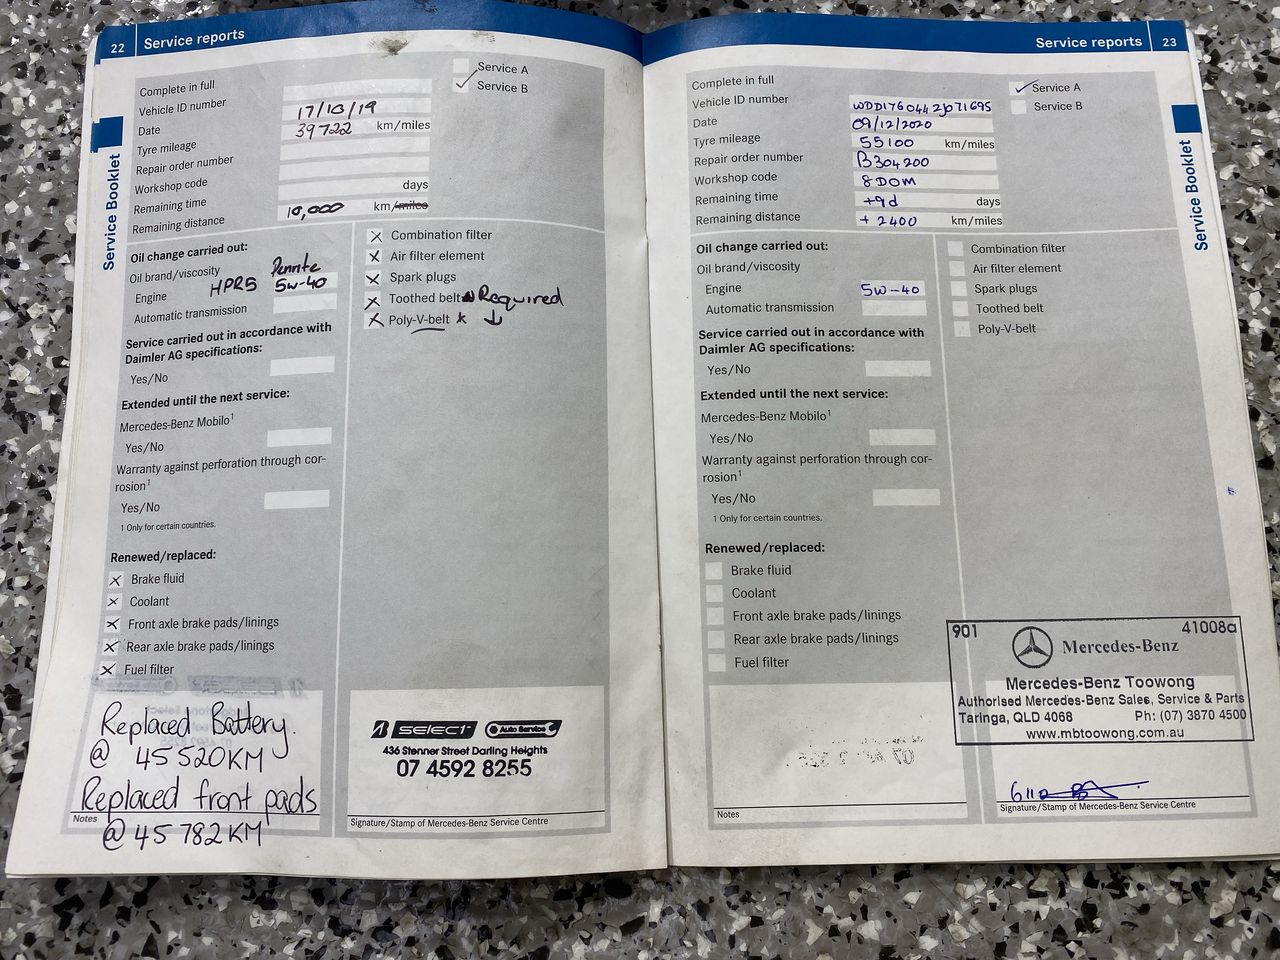 22 Service reports
Complete in full
Vehicle ID number
Date 17/10/19
Tyre mileage 39722 km/miles
Repair order number
Workshop code
Remaining time days
Remaining distance 10,000 km/miles
Service A
✓ Service B
Service Booklet
Oil change carried out:
Oil brand/viscosity
Engine HPR5 Pennte 5w-40
Automatic transmission
Service carried out in accordance with
Daimler AG specifications:
Yes/No
Extended until the next service:
Mercedes-Benz Mobilo1
Yes/No
Warranty against perforation through cor-
rosion1
Yes/No
1 Only for certain countries.
Renewed/replaced:
X Brake fluid
X Coolant
X Front axle brake pads/linings
X Rear axle brake pads/linings
X Fuel filter
X Combination filter
X Air filter element
X Spark plugs
X Toothed belt Required
X Poly-V-belt * ↓
Replaced Battery.
@ 45520KM
Replaced front pads
Notes
@ 45782KM
SELECT Auto Service
436 Stenner Street Darling Heights
07 4592 8255
Signature/Stamp of Mercedes-Benz Service Centre
Service reports 23
Complete in full
Vehicle ID number WDD1760442J071695
Date 09/12/2020
Tyre mileage 55100 km/miles
Repair order number B304200
Workshop code 8DOM
Remaining time +9d days
Remaining distance + 2400 km/miles
✓ Service A
Service B
Service Booklet
Oil change carried out:
Oil brand/viscosity
Engine 5w-40
Automatic transmission
Service carried out in accordance with
Daimler AG specifications:
Yes/No
Extended until the next service:
Mercedes-Benz Mobilo1
Yes/No
Warranty against perforation through cor-
rosion1
Yes/No
1 Only for certain countries.
Renewed/replaced:
Brake fluid
Coolant
Front axle brake pads/linings
Rear axle brake pads/linings
Fuel filter
Combination filter
Air filter element
Spark plugs
Toothed belt
Poly-V-belt
901 41008a
Mercedes-Benz
Mercedes-Benz Toowong
Authorised Mercedes-Benz Sales, Service & Parts
Taringa, QLD 4068 Ph: (07) 3870 4500
www.mbtoowong.com.au
Notes
Signature/Stamp of Mercedes-Benz Service Centre